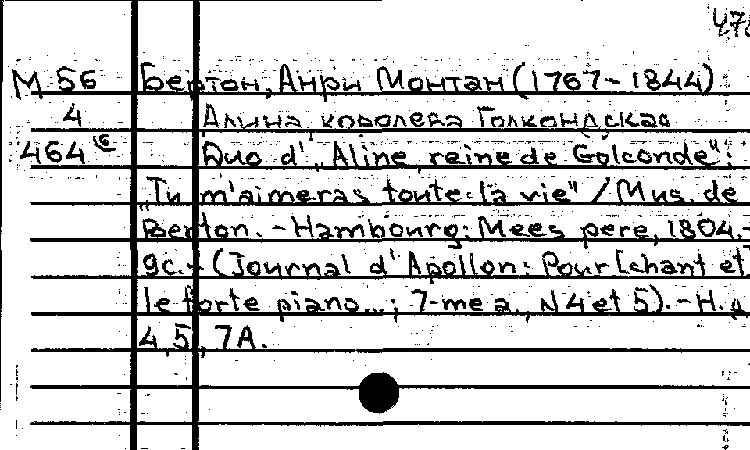 М 56 Бертон, Анри Монтан (1767-1844)
4 Алина, королева Голкондская
464 Duo d' „Aline, reine de Golconde":
„Tu m'aimeras toute la vie" / Mus. de
Berton. - Hambourg: Mees pere, 1804.-
9c. - (Journal d'Apollon: Pour [chant et
le forte piano...; 7-me a., N 4 et 5). - Н.д.
4, 5, 7А.